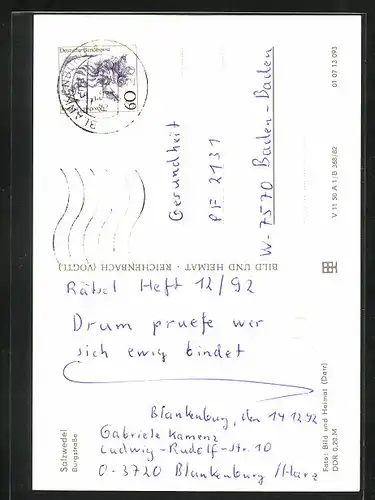 Deutsche Bundespost
60
Gesundheit
PF 2131
W-7570 Baden-Baden
01 07 13 093
V 11 50 A 1/B 368/82
BILD UND HEIMAT · REICHENBACH (VOGTL)
Rätsel Heft 12/92
Drum pruefe wer
sich ewig bindet
Blankenburg, den 14.12.92
Gabriele Kamenz
Ludwig-Rudolf-Str. 10
O-3720 Blankenburg/Harz
Salzwedel
Burgstraße
Foto: Bild und Heimat (Darr)
DDR 0,20 M